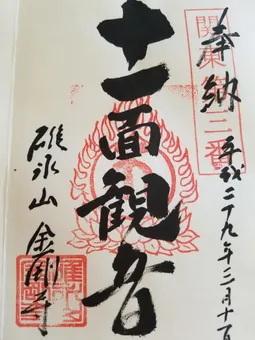 奉納
平成二十九年三月十一日
関東第三番
十一面観音
碓氷山
金剛寺